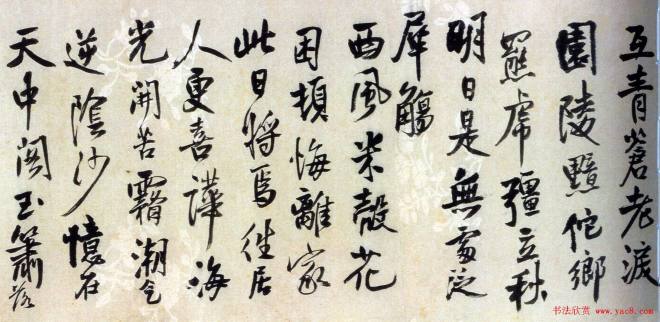 互青蒼老淚
園陵黯佗鄉
羆虎彊立秋
明日是無家泛
犀觴
西風米殼花
困頓悔離家
此日將焉往居
人更喜譁海
光開苦霧潮气
逆陰沙憶在
天中閣玉簫落
书法欣赏 www.yac8.com